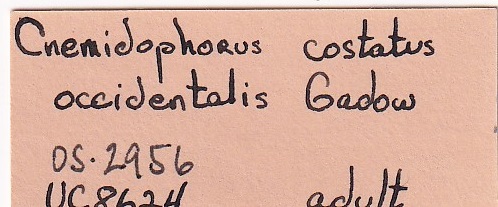 Cnemidophorus costatus
occidentalis Gadow
OS.2956
UC8624 adult